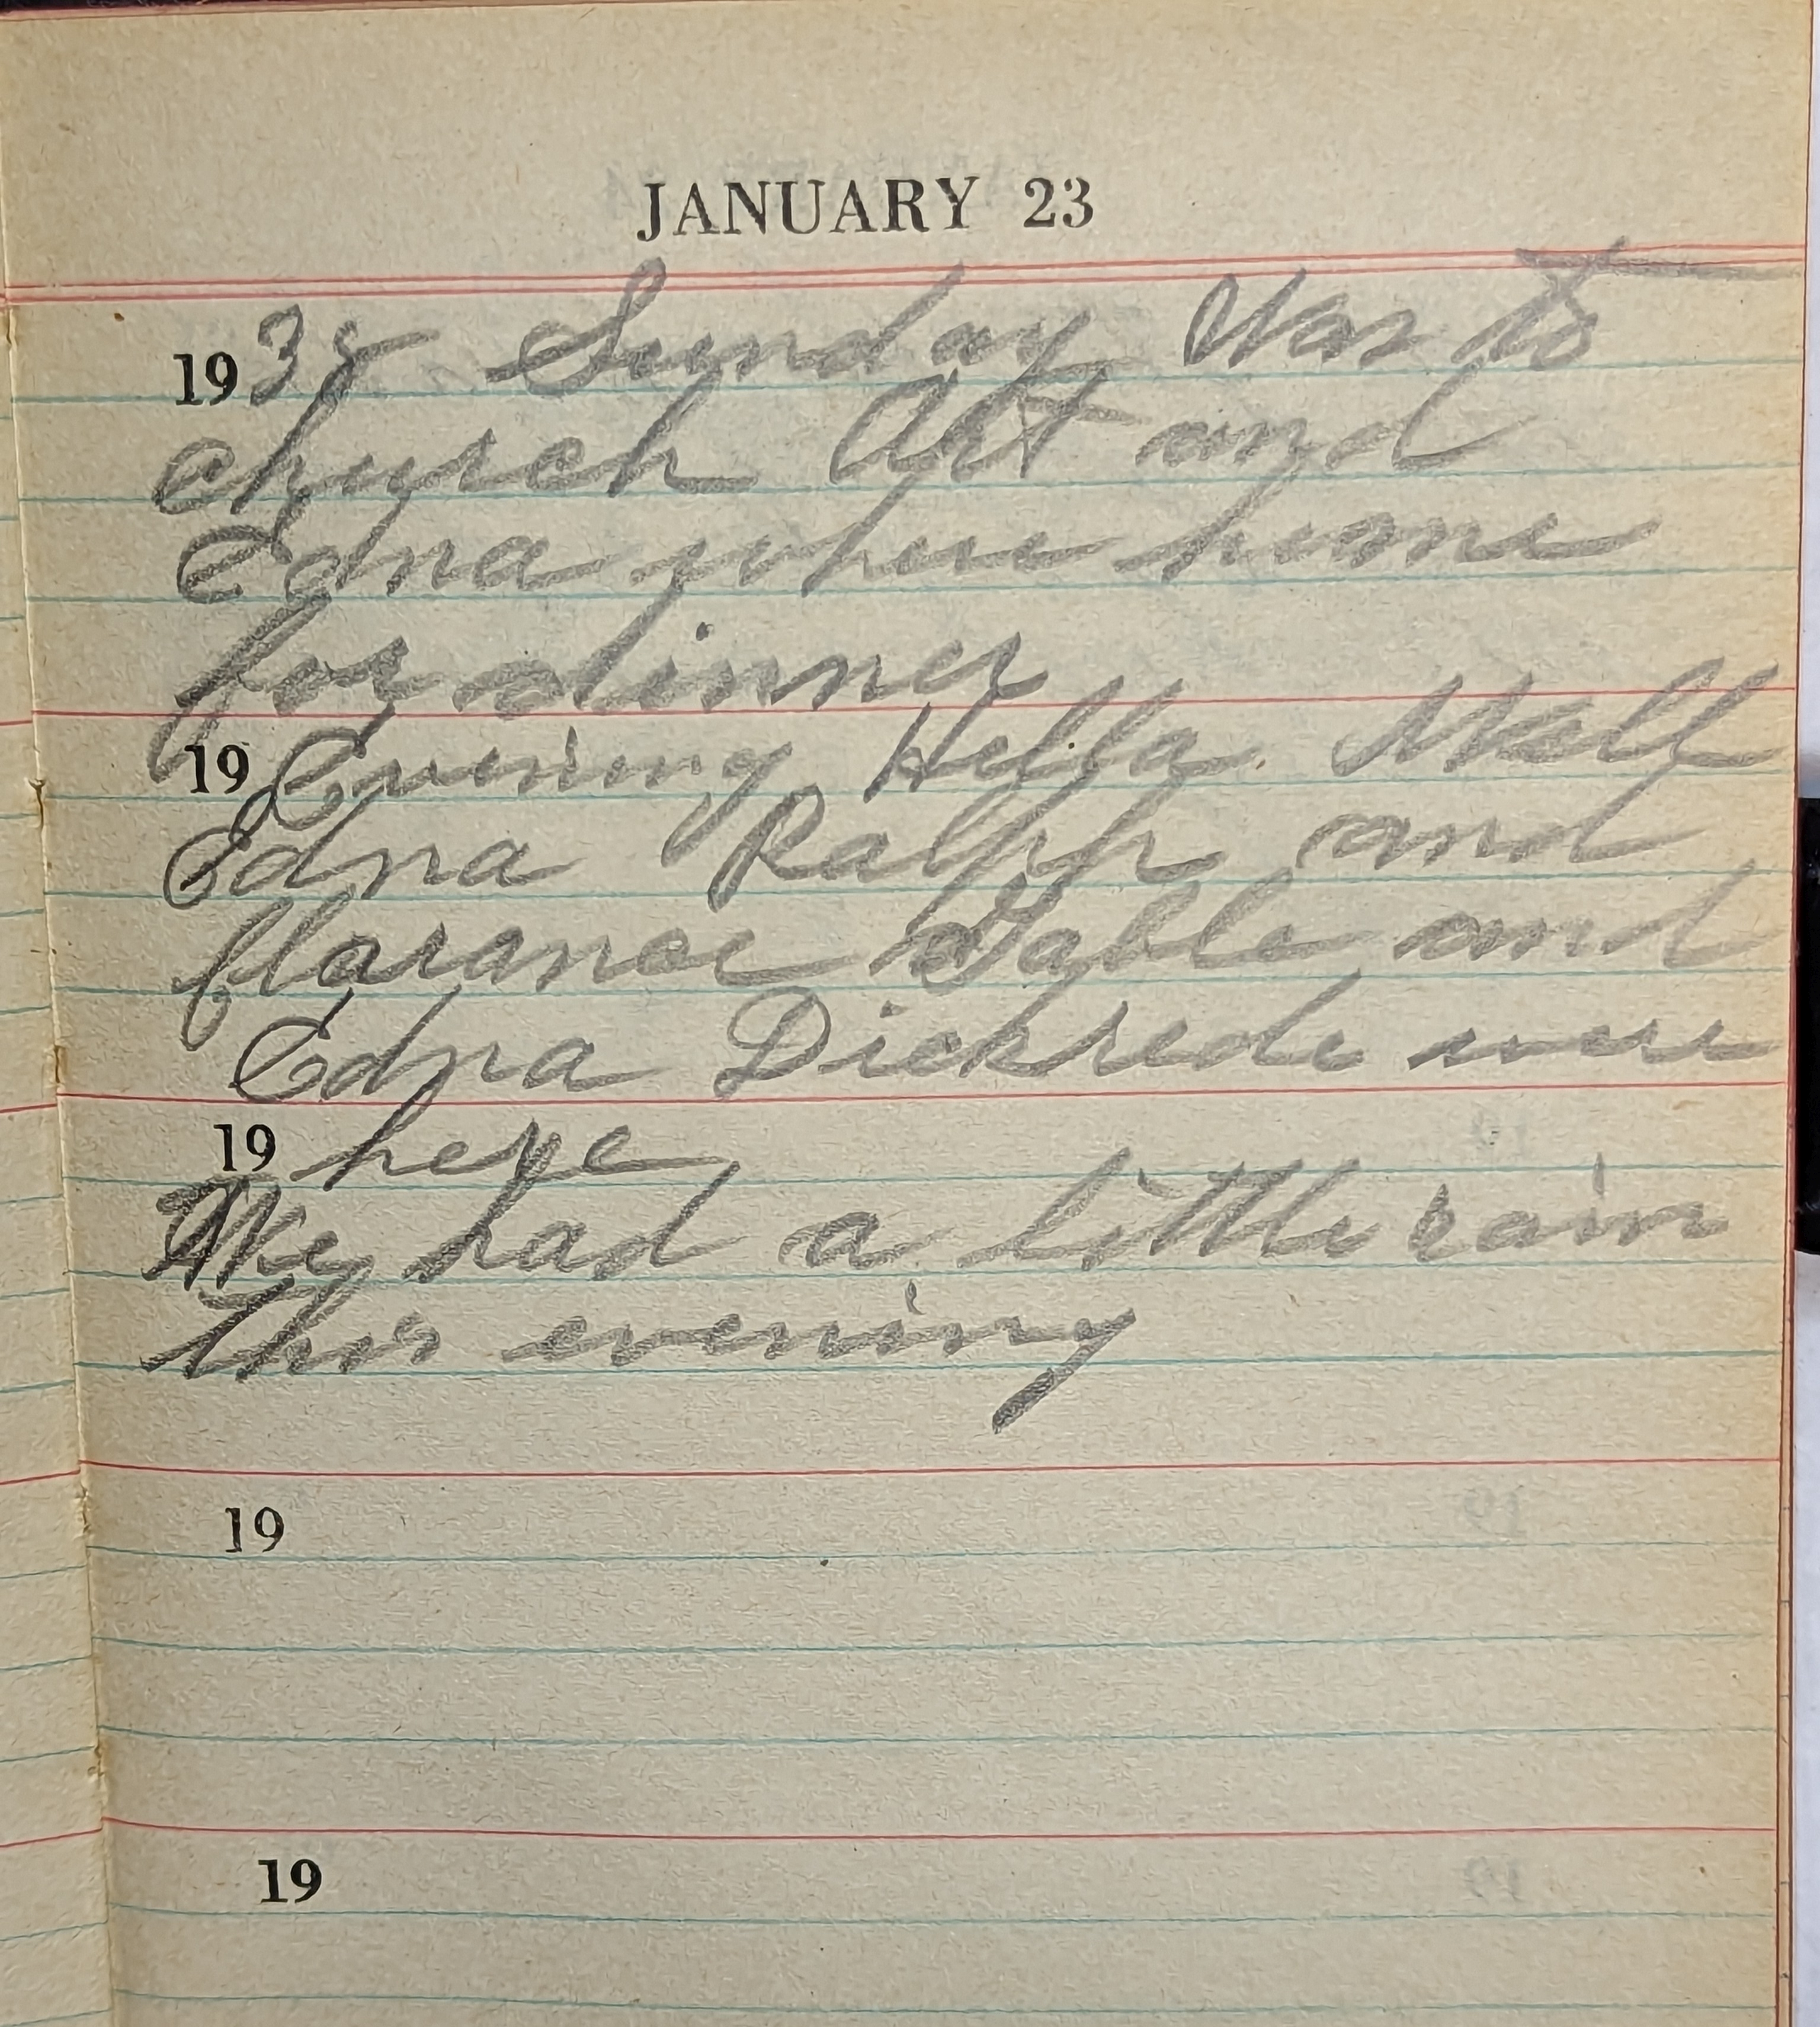 JANUARY 23
1938 Sunday Was to
church Art and
Edna where home
for dinner
19 Evening Hella. Mell
Edna Ralph and
florance Gable and
Edna Diekrede were
19 here
We had a little rain
this evening
19
19